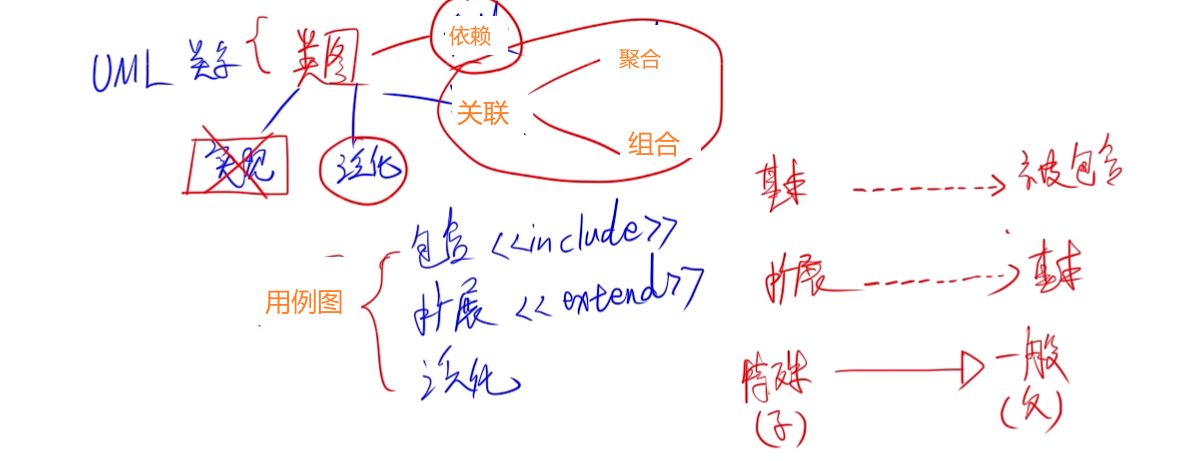 依赖
聚合
UML 关系 { 类图
关联
组合
实现
泛化
用例图
包含 <<include>>
扩展 <<extend>>
泛化
基本 ------> 被包含
扩展 ------> 基本
特殊
(子)
一般
(父)